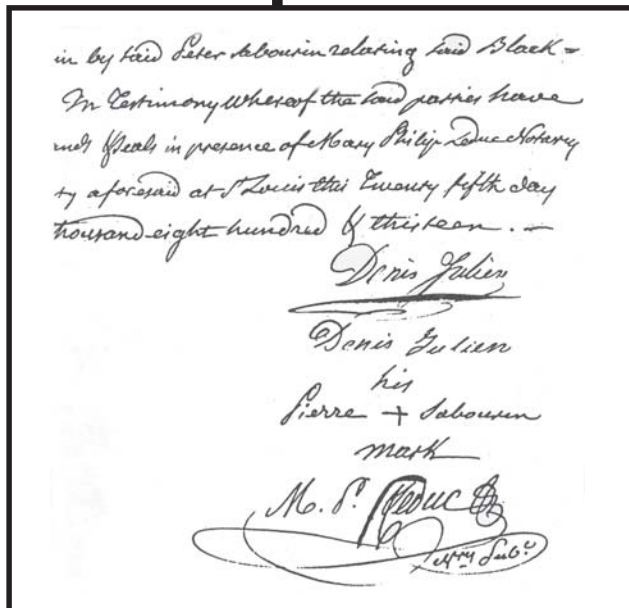 in by said Peter Sabourin relating said Black =
In Testimony Whereof the said parties have
ands & Seals in presence of Mary Philip Leduc Notary
ty aforesaid at St Louis this Twenty fifth day
thousand eight hundred & thirteen . —
Denis Julien
Denis Julien
his
Pierre + Sabourin
mark
M. P. Leduc
Nry Pubc